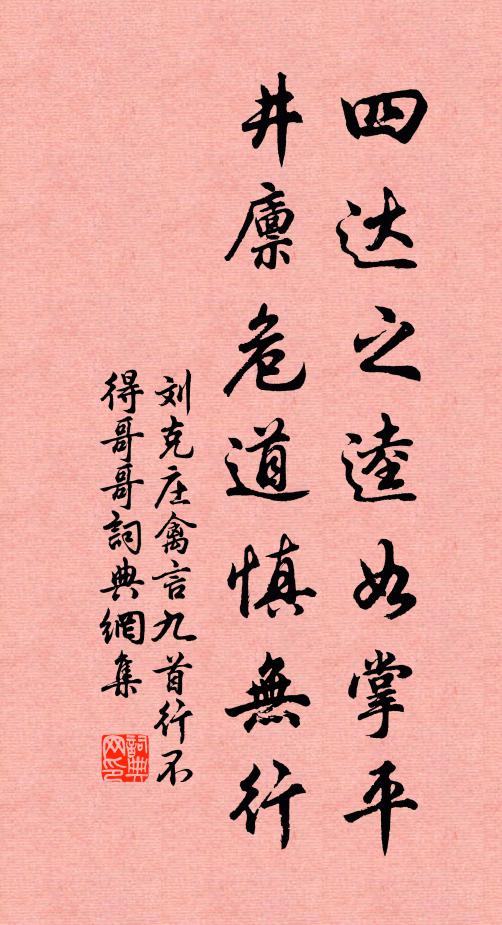 四达之逵如掌平
井廪危道慎無行
刘克庄禽言九首行不
得哥哥詞典網集
詞典
网印